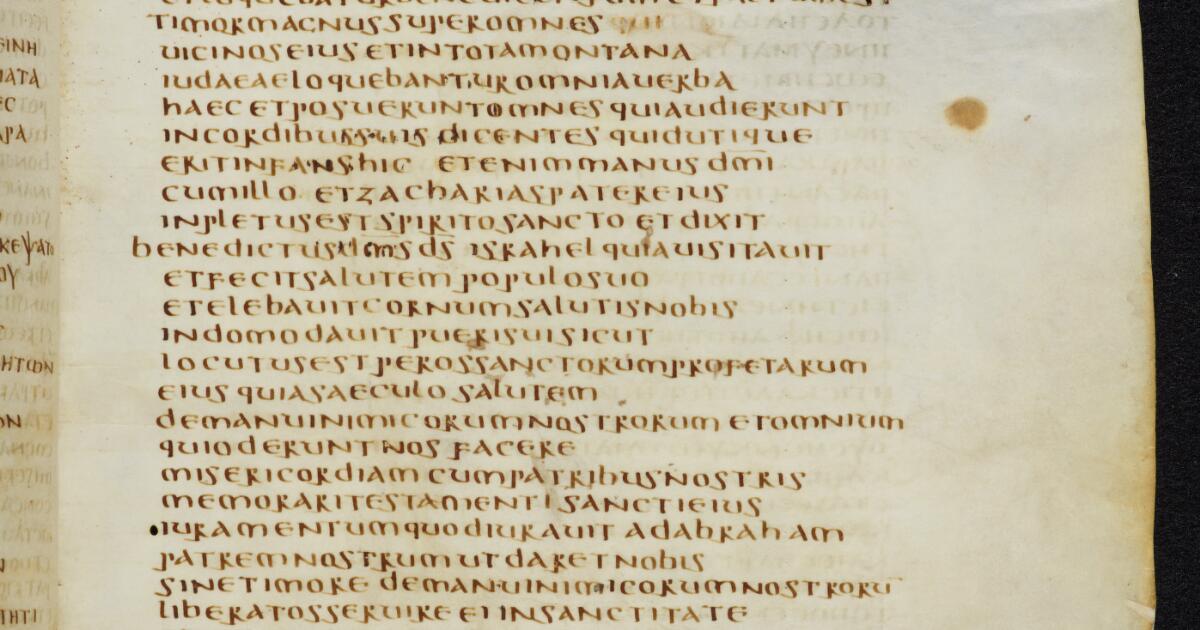 TIMORMAGNUSSUPEROMNES
UICINOSEIUSETINTOTAMONTANA
IUDAEAELOQUEBANTUROMNIAUERBA
HAECETPOSUERUNTOMNESQUIAUDIERUNT
INCORDIBUSSUISDICENTESQUIDUTIQUE
ERITINFANSHIC ETENIMMANUSDM̅I
CUMILLO ETZACHARIASPATEREIUS
INPLETUSESTSPIRITOSANCTO ETDIXIT
BENEDICTUS DS ISRAHELQUIAUISITAUIT
ETFECITSALUTEMPOPULOSUO
ETELEBAUITCORNUMSALUTISNOBIS
INDOMODAUITPUERISUISICUT
LOCUTUSESTPEROSSANCTORUMPROFETARUM
EIUSQUIASAECULOSALUTEM
DEMANUINIMICORUMNOSTRORUMETOMNIUM
QUIODERUNTNOSFACERE
MISERICORDIAMCUMPATRIBUSNOSTRIS
MEMORARITESTAMENTISANCTIEIUS
IURAMENTUMQUODIURAUITADABRAHAM
PATREMNOSTRUMUTDARETNOBIS
SINETIMOREDEMANUINIMICORUMNOSTRORU̅
LIBERATOSSERUIREEIINSANCTITATE